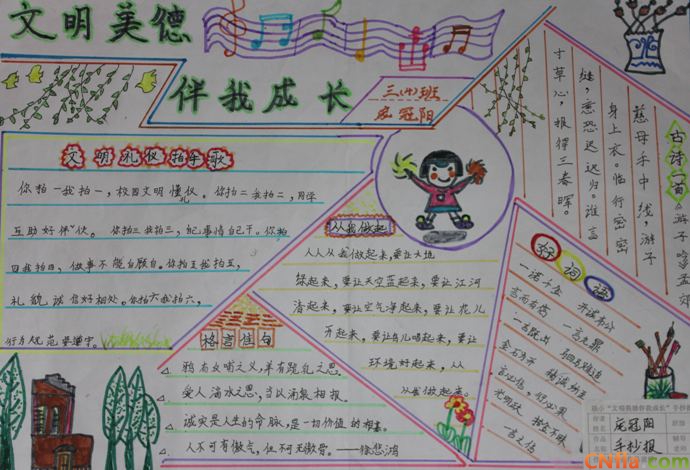 文明美德
伴我成长
三(4)班
冠阳
文明礼仪拍手歌
你拍一我拍一，校园文明懂礼仪。你拍二我拍二，同学
互助好伴伙。你拍三我拍三，自己事情自己干。你拍
四我拍四，做事不能自顾自。你拍五我拍五，
礼貌诚信好相处。你拍六我拍六，
行为规范要遵守。
从我做起
人人从我做起来，要让大地
绿起来，要让天空蓝起来，要让江河
清起来，要让空气净起来，要让花儿
开起来，要让鸟儿唱起来，要让
环境好起来，从
我做起来。
格言佳句
鸦有反哺之义，羊有跪乳之恩。
受人滴水之恩，当以涌泉相报。
诚实是人生的命脉，是一切价值的根基。
人不可有傲气，但不可无傲骨。——徐悲鸿
古诗一首
游子吟 孟郊
慈母手中线，游子
身上衣。临行密密
缝，意恐迟迟归。谁言
寸草心，报得三春晖。
好词语
一诺千金 开诚布公
言而有信 一言九鼎
一言既出 驷马难追
金石为开 精诚所至
言必信，行必果
光明磊
一言之信
冠阳
手抄报
CNfla.com